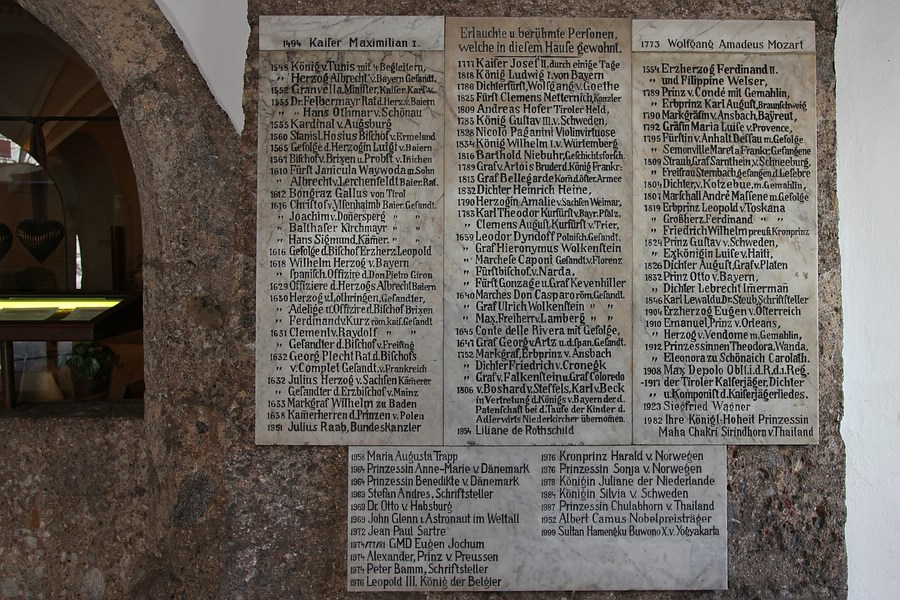 1494 Kaiser Maximilian I.
1548 König v. Tunis mit 4 Begleitern,
" Herzog Albrecht v. Bayern Gesandt.
1552 Granvella, Minister, Kaiser Karl v.
1553 Dr. Felbermayr Rat d. Herz. v. Baiern
" " Hans Othmar v. Schönau
1555 Kardinal v. Augsburg
1560 Stanisl. Hosius Bischof v. Ermeland
1565 Gefolge d. Herzogin Luigi v. Baiern
1561 Bischof v. Brixen u. Probst v. Inichen
1610 Fürst Janucia Waywoda m. Sohn
" Albrecht v. Lerchenfeldt Baier. Rat.
1612 Bongratz Gallus von Tirol
1616 Christof v. Ylsenhaimb Baier. Gesandt.
" Joachim v. Donersperg " "
" Balthaser Kirchmayr " "
" Hans Sigmund, Kämer. " "
1616 Gefolge d. Bischof Erzherz. Leopold
1618 Wilhelm Herzog v. Bayern
" spanisch. Offizire d. Don Pietro Giron
1629 Offiziere d. Herzogs Albrecht Baiern
1630 Herzog v. Lothringen, Gesandter,
" Adelige u. Offize d. Bischof Brixen
" Ferdinand v. Kurz röm. kais. Gesandt
1631 Clement v. Raydolf " "
" Gesandter d. Bischof v. Freising
1832 Georg Plecht Rat. d. Bischofs
" v. Complet Gesandt. v. Frankreich
1632 Julius Herzog v. Sachsen Kämerer
" Gesandter d. Erzbischof v. Mainz
1633 Markgraf Wilhelm zu Baden
1638 Kamerherren d. Prinzen v. Polen
1951 Julius Raab, Bundeskanzler
Erlauchte u. berühmte Personen,
welche in diesem Hause gewohnt.
1777 Kaiser Josef II. durch einige Tage
1818 König Ludwig I. von Bayern
1786 Dichterfürst, Wolfgang v. Goethe
1825 Fürst Clemens Metternich, Kanzler
1809 Andreas Hofer Tiroler Held,
1785 König Gustav III. v. Schweden,
1828 Nicolo Paganini Violinvirtuose
1834 König Wilhelm I. v. Würtemberg
1816 Barthold Niebuhr, Geschichtsforsch.
1789 Graf v. Artois Bruder d. König Frankr:
1813 Graf Bellegarde Kom. d. öster. Armee
1832 Dichter Heinrich Heine,
1790 Herzogin Amalie v. Sachsen Weimar,
1783 Karl Theodor Kurfürst v. Bayr. Pfalz,
" Clemens August. Kurfürst v. Trier,
1659 Leodor Dyndoff Polnisch. Gesandt.
" Graf Hieronymus Wolkenstein
" Marchese Caponi Gesandt. v. Florenz
" Fürstbischof v. Narda,
" Fürst Gonzage u. Graf Kevenhiller
1640 Marches Don Casparo röm. Gesandt.
" Graf Ulrich Wolkenstein " "
" Max, Freiherr v. Lamberg " "
1645 Conte delle Rivera mit Gefolge,
1647 Graf Georg v. Artz u. d. span. Gesandt.
1752 Markgraf, Erbprinz v. Ansbach
" Dichter Friedrich v. Cronegk
" Graf v. Falkenstein u. Graf Coloredo
1806 v. Boshard v. Steffels, Karl v. Beck
in Vertretung d. Königs v. Bayern der d.
Patenschaft bei d. Taufe der Kinder d.
Adlerwirts Niederkircher übernomen.
1954 Liliane de Rothschild
1773 Wolfgang Amadeus Mozart
1554 Erzherzog Ferdinand II.
" und Filippine Welser,
1789 Prinz v. Condé mit Gemahlin,
" Erbprinz Karl August, Braunschweig
1790 Markgräfin v. Ansbach, Bayreut,
1792 Gräfin Maria Luise v. Provence,
1795 Fürstin v. Anhalt Dessau m. Gefolge
" Semonville Maret a. Frankr. Gefangene
1809 Straub, Graf Sarnthein, v. Schneeburg,
" Freifrau Sternbach, gefangen d. Lefebre
1804 Dichter, v. Kotzebue, m. Gemahlin,
1801 Marschall André Massene m. Gefolge
1819 Erbprinz Leopold v. Toskana
" Großherz. Ferdinand " "
" Friedrich Wilhelm preuß. Kronprinz
1824 Prinz Gustav v. Schweden,
" Exkönigin Luise v. Haiti,
1826 Dichter August, Graf v. Platen
1832 Prinz Otto v. Bayern,
" Dichter Lebrecht Imerman
1846 Karl Lewald u. Dr. Steub, Schriftsteller
1904 Erzherzog Eugen v. Österreich
1910 Emanuel, Prinz v. Orleans,
" Herzog v. Vendome m. Gemahlin,
1912 Prinzessinnen Theodora, Wanda,
" Eleonora zu Schönaich Carolath.
1908 Max Depolo Obl.t.i.d.R.d.1. Reg.
-1917 der Tiroler Kaiserjäger, Dichter
" u. Komponist d. Kaiserjägerliedes.
1923 Siegfried Wagner
1982 Ihre Königl. Hoheit Prinzessin
Maha Chakri Sirindhorn v. Thailand
1958 Maria Augusta Trapp
1964 Prinzessin Anne-Marie v. Dänemark
1964 Prinzessin Benedikte v. Dänemark
1969 Stefan Andres, Schriftsteller
1969 Dr. Otto v. Habsburg
1969 John Glenn 1. Astronaut im Weltall
1972 Jean Paul Sartre
1974/77/81 GMD Eugen Jochum
1974 Alexander, Prinz v. Preussen
1974 Peter Bamm, Schriftsteller
1976 Leopold III. König der Belgier
1976 Kronprinz Harald v. Norwegen
1976 Prinzessin Sonja v. Norwegen
1978 Königin Juliane der Niederlande
1984 Königin Silvia v. Schweden
1987 Prinzessin Chulabhorn v. Thailand
1952 Albert Camus Nobelpreisträger
1999 Sultan Hamengku Buwono X. v. Yogyakarta